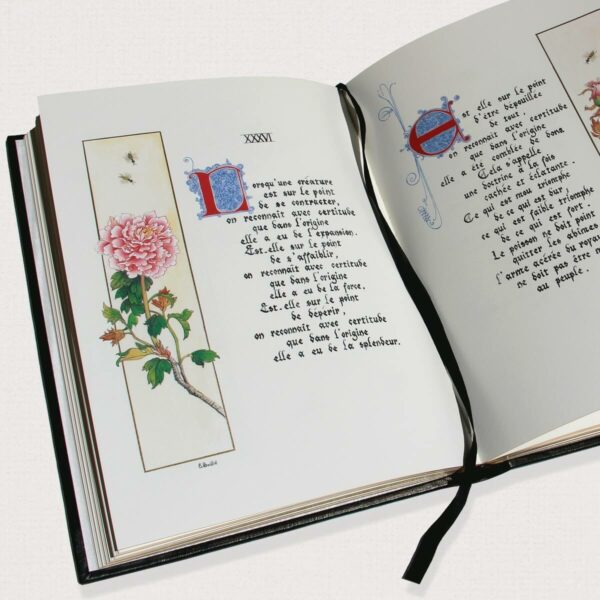 XXXVI
Lorsqu'une créature
est sur le point
de se contracter,
on reconnaît avec certitude
que dans l'origine
elle a eu de l'expansion.
Est-elle sur le point
de s'affaiblir,
on reconnaît avec certitude
que dans l'origine
elle a eu de la force.
Est-elle sur le point
de dépérir,
on reconnaît avec certitude
que dans l'origine
elle a eu de la splendeur.
Est elle sur le point
d'être dépouillée
de tout,
on reconnaît avec certitude
que dans l'origine
elle a été comblée de dons.
Cela s'appelle
une doctrine à la fois
cachée et éclatante.
Ce qui est mou triomphe
de ce qui est dur,
ce qui est faible triomphe
de ce qui est fort.
Le poisson ne doit point
quitter les abîmes
l'arme acérée du royau
ne doit pas être m
au peuple.